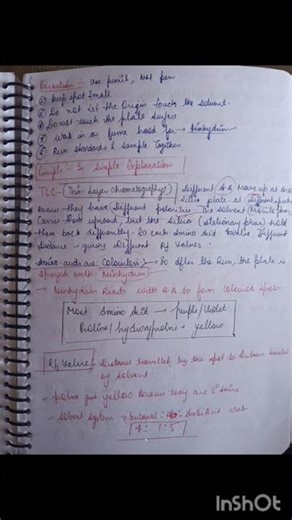 Precaution :- Use pencil, not pen
① Keep spot small
② Do not let the Origin touch the solvent.
③ Do not touch the plate surface
④ Work in a fume hood for → Ninhydrin
⑤ Run standards & sample together
Simple Explanation
TLC → (Thin layer chromatography) Different A.A move up at
silica plate at different
they have different polarities the solvent (mobile
them upward, but the silica (stationary phase) hold
them back differently. So each amino acid travels different
distance - giving different Rf values.
Amino acids are Colourless :- So after the Run, the plate is
sprayed with Ninhydrin
- Ninhydrin Reacts with A.A to form coloured
Most Amino acid → purple/violet
Proline / hydroxyproline → yellow
Rf Value :- Distance travelled by the spot to Distance travelled
by solvent
- proline give yellow they are 2°
- Solvent system Acid
4 : 1 : 5
InShOt